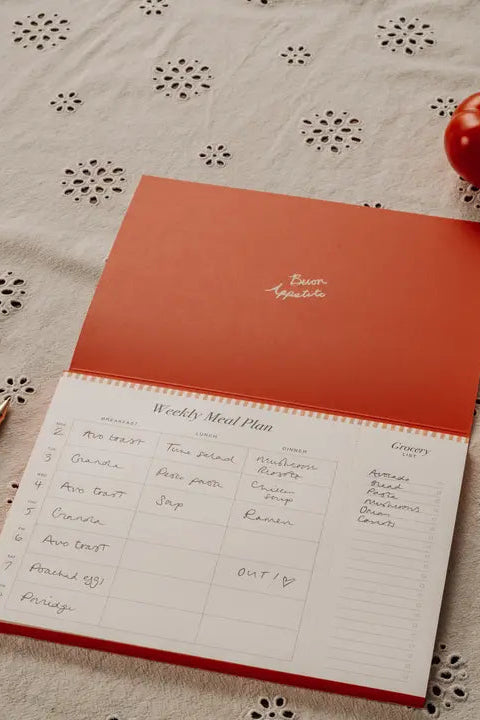 Buon
Appetito
Weekly Meal Plan
BREAKFAST LUNCH DINNER
2 Avo toast Tuna salad Mushroom Risotto
3 Granola Pesto pasta Chicken soup
4 Avo toast Soup Ramen
5 Granola
6 Avo toast
7 Poached eggs OUT!♡
Porridge
Grocery
LIST
Avocado
Bread
Pasta
Mushrooms
Onion
Carrots